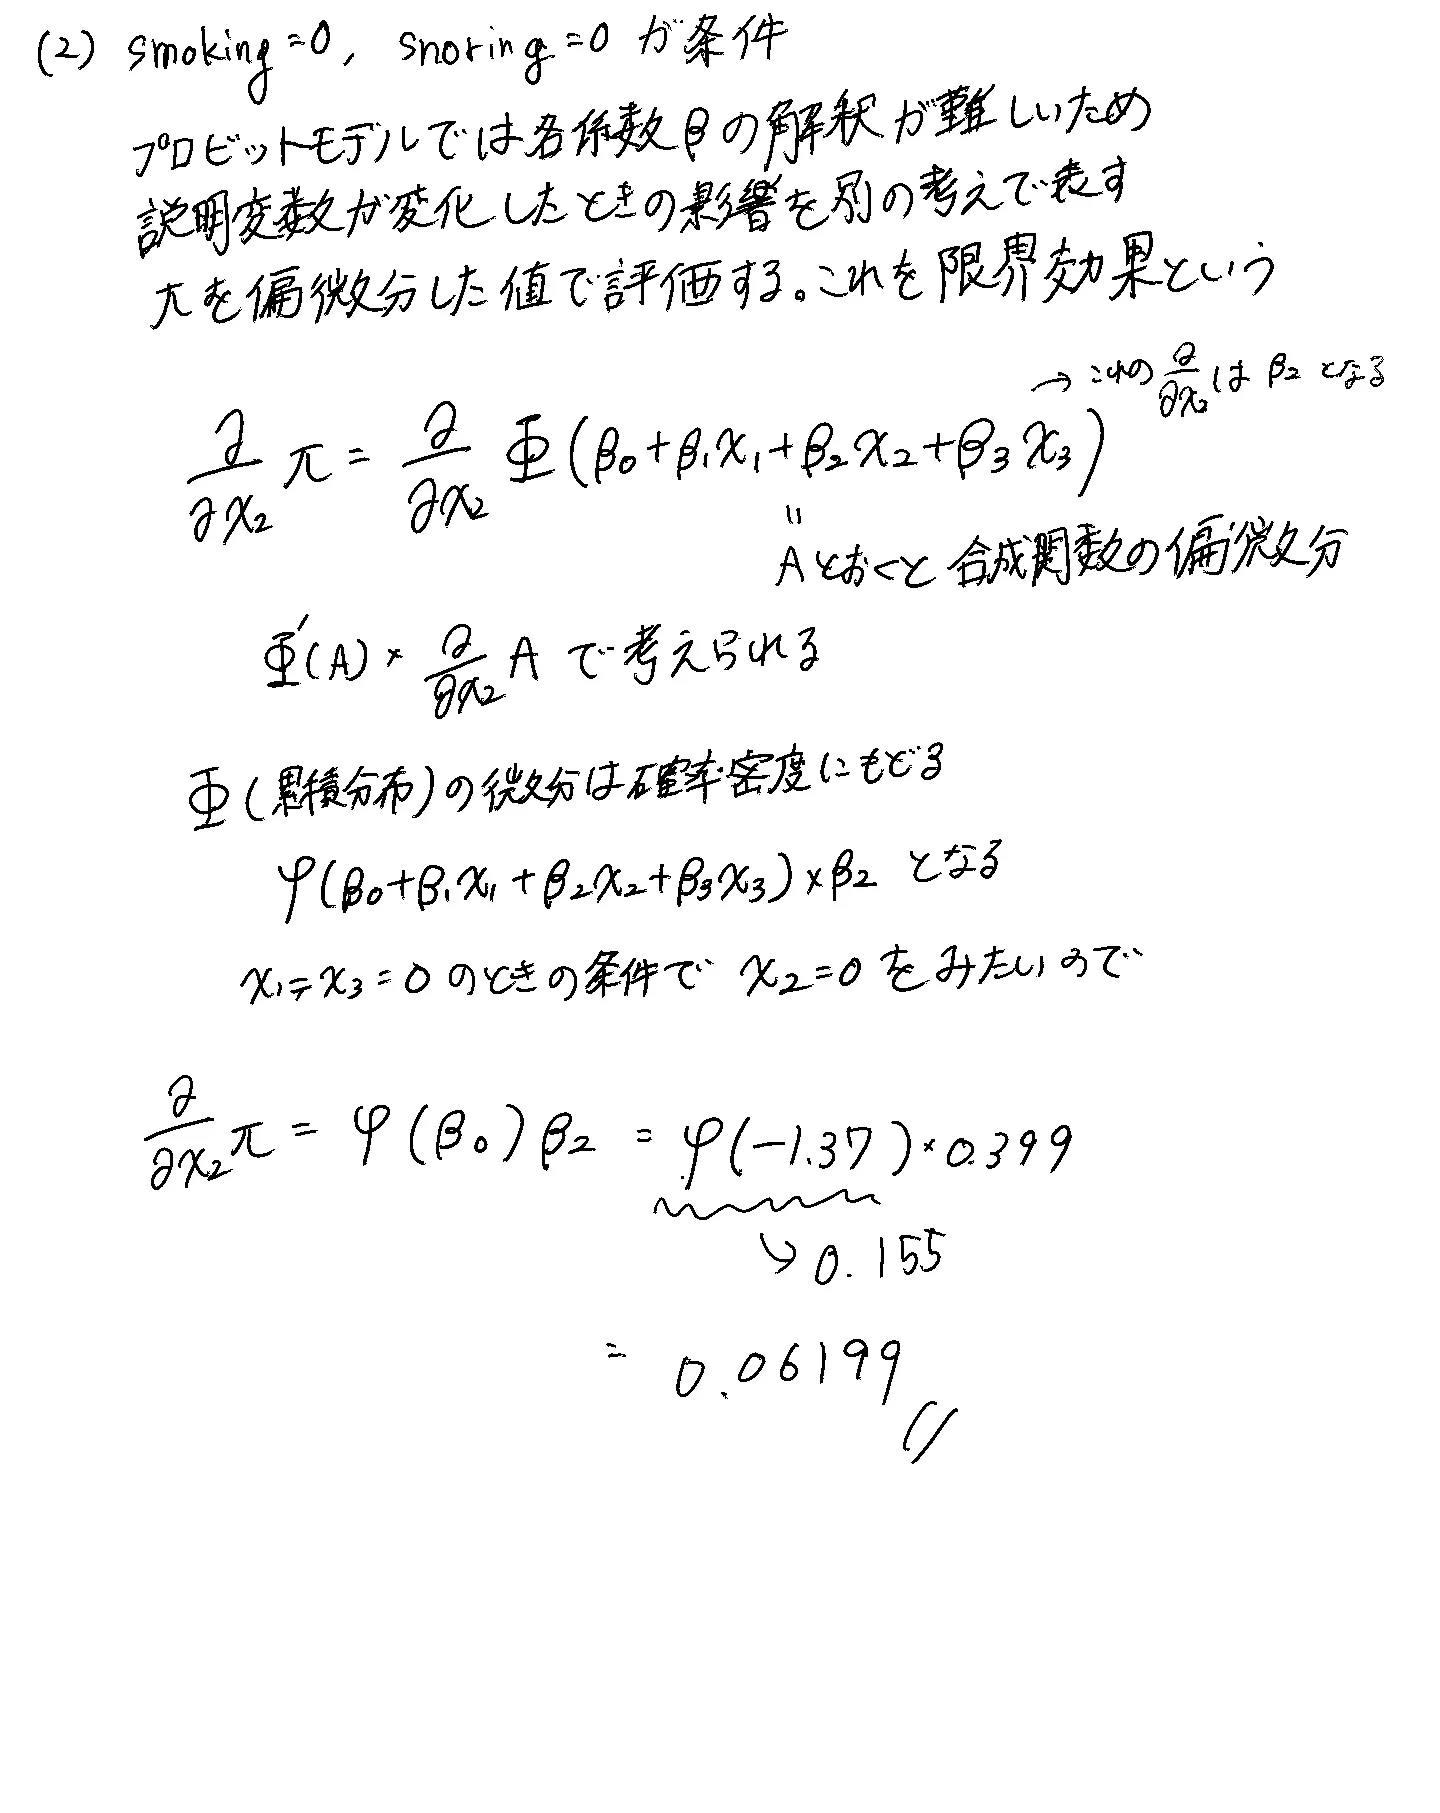 (2) smoking=0, snoring=0 が条件
プロビットモデルでは各係数βの解釈が難しいため
説明変数が変化したときの影響を別の考えで表す
πを偏微分した値で評価する。これを限界効果という
→ これの ∂/∂x₂ は β₂ となる
∂/∂x₂ π = ∂/∂x₂ Φ(β₀+β₁x₁+β₂x₂+β₃x₃)
〃
Aとおくと 合成関数の偏微分
Φ'(A)× ∂/∂x₂ A で考えられる
Φ(累積分布)の微分は確率密度にもどる
φ(β₀+β₁x₁+β₂x₂+β₃x₃)×β₂ となる
x₁=x₃=0 のときの条件で x₂=0 をみたいので
∂/∂x₂ π = φ(β₀)β₂ = φ(-1.37)×0.399
↘ 0.155
= 0.06199 //